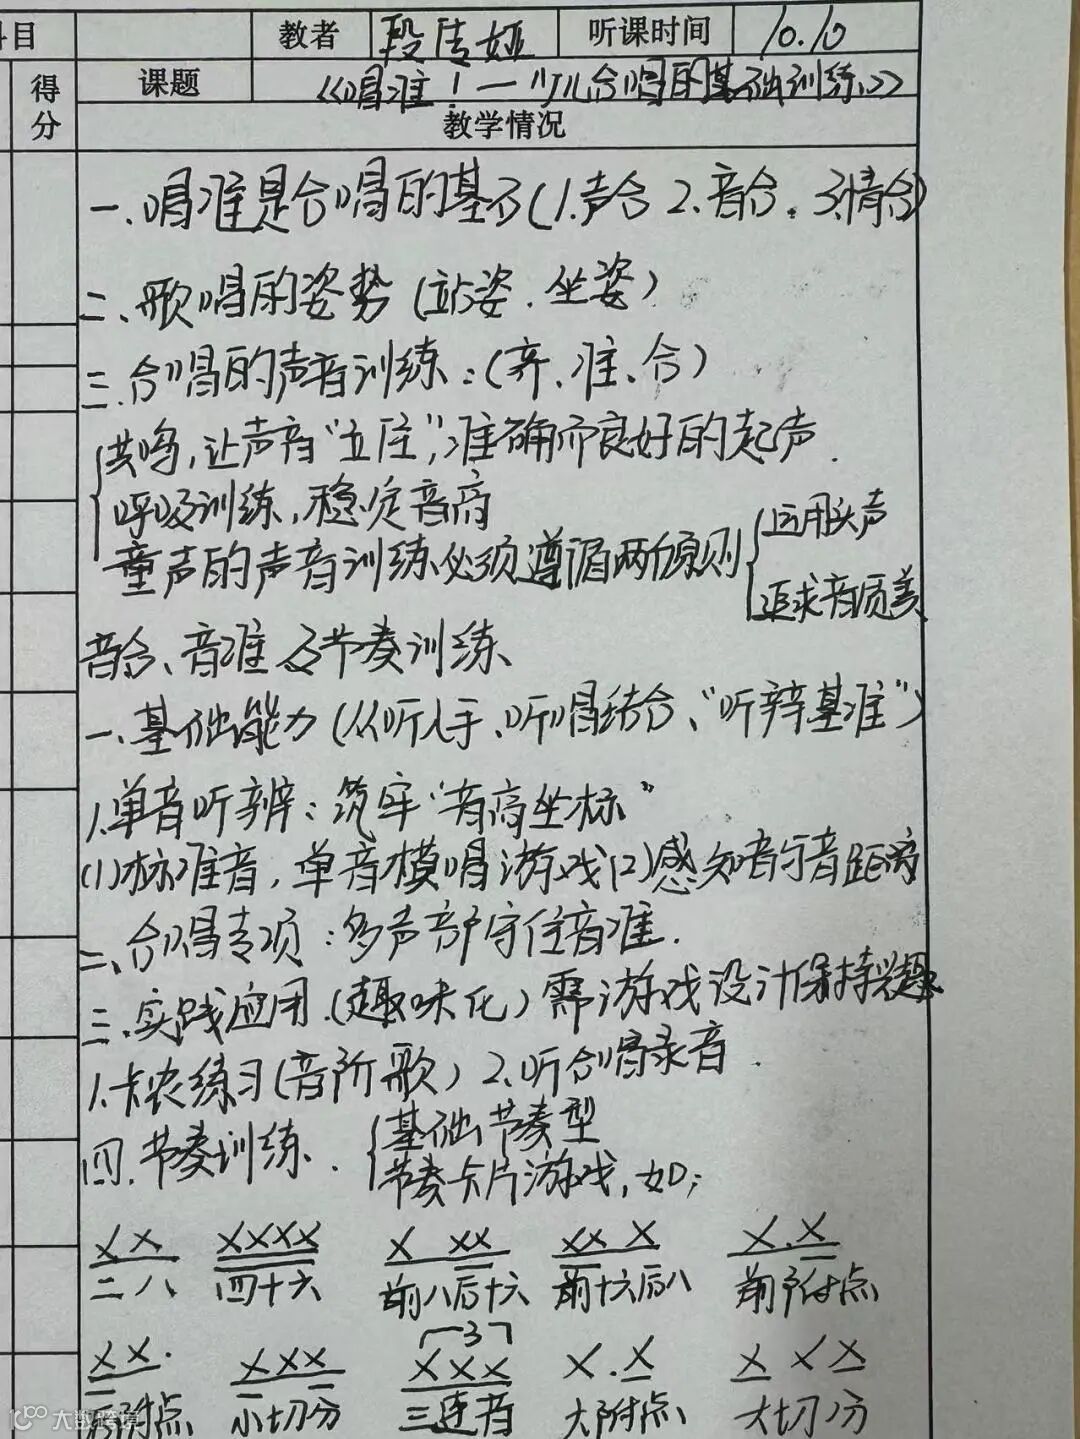 目 教者 段传娅 听课时间 10.10
得分 课题 《唱准!一少儿合唱的基础训练》
教学情况
一、唱准是合唱的基石(1.声合 2.音合. 3.情合)
二、歌唱的姿势(站姿.坐姿)
三.合唱的声音训练:(齐、准、合)
共鸣,让声音"立住",准确而良好的起声.
呼吸训练,稳定音高
童声的声音训练必须遵循两个原则 运用头声
追求音质美
音合、音准及节奏训练
一、基础能力(从听入手、听唱结合、"听辨基准")
1.单音听辨:筑牢"音高坐标"
(1)标准音,单音模唱游戏(2)感知音与音距离
二、合唱专项:多声部守住音准.
三.实践应用.(趣味化)需游戏设计保持兴趣
1.卡农练习(音阶歌)2.听合唱录音.
四.节奏训练. 基础节奏型
节奏卡片游戏,如:
X X XXXX X XX XX X X.X
二八 四十六 前八后十六 前十六后八 前附点
3
X X. XXX XXX X.X X X X
后附点 小切分 三连音 大附点 大切分
大数跨境